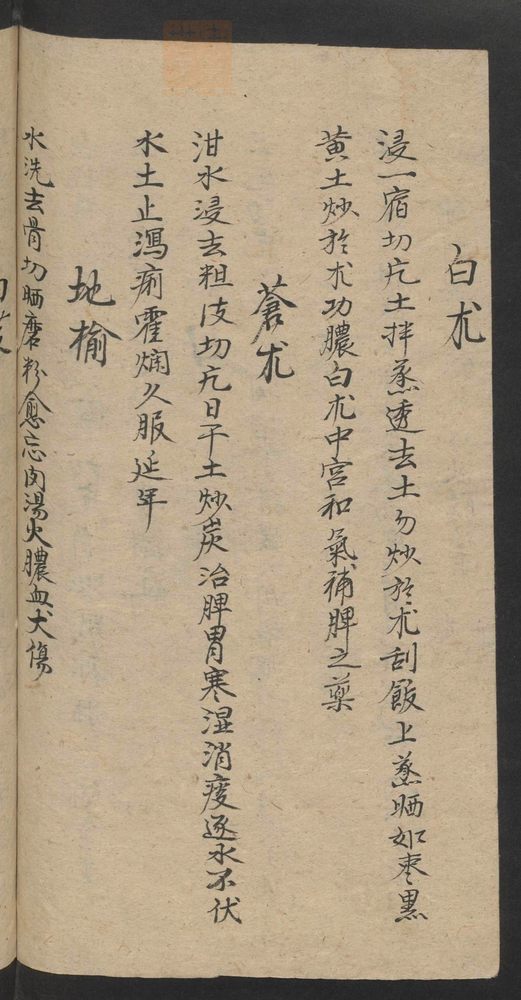 白朮
浸一宿切片土拌蒸透去土勿炒於朮刮飯上蒸晒如枣黒
黄土炒於朮功膿白朮中宮和氣補脾之藥
蒼朮
泔水浸去粗皮切片日干土炒炭治脾胃寒湿消痰逐水不伏
水土止瀉痢霍爛久服延年
地榆
水洗去骨切晒磨粉愈忘肉湯火膿血犬傷